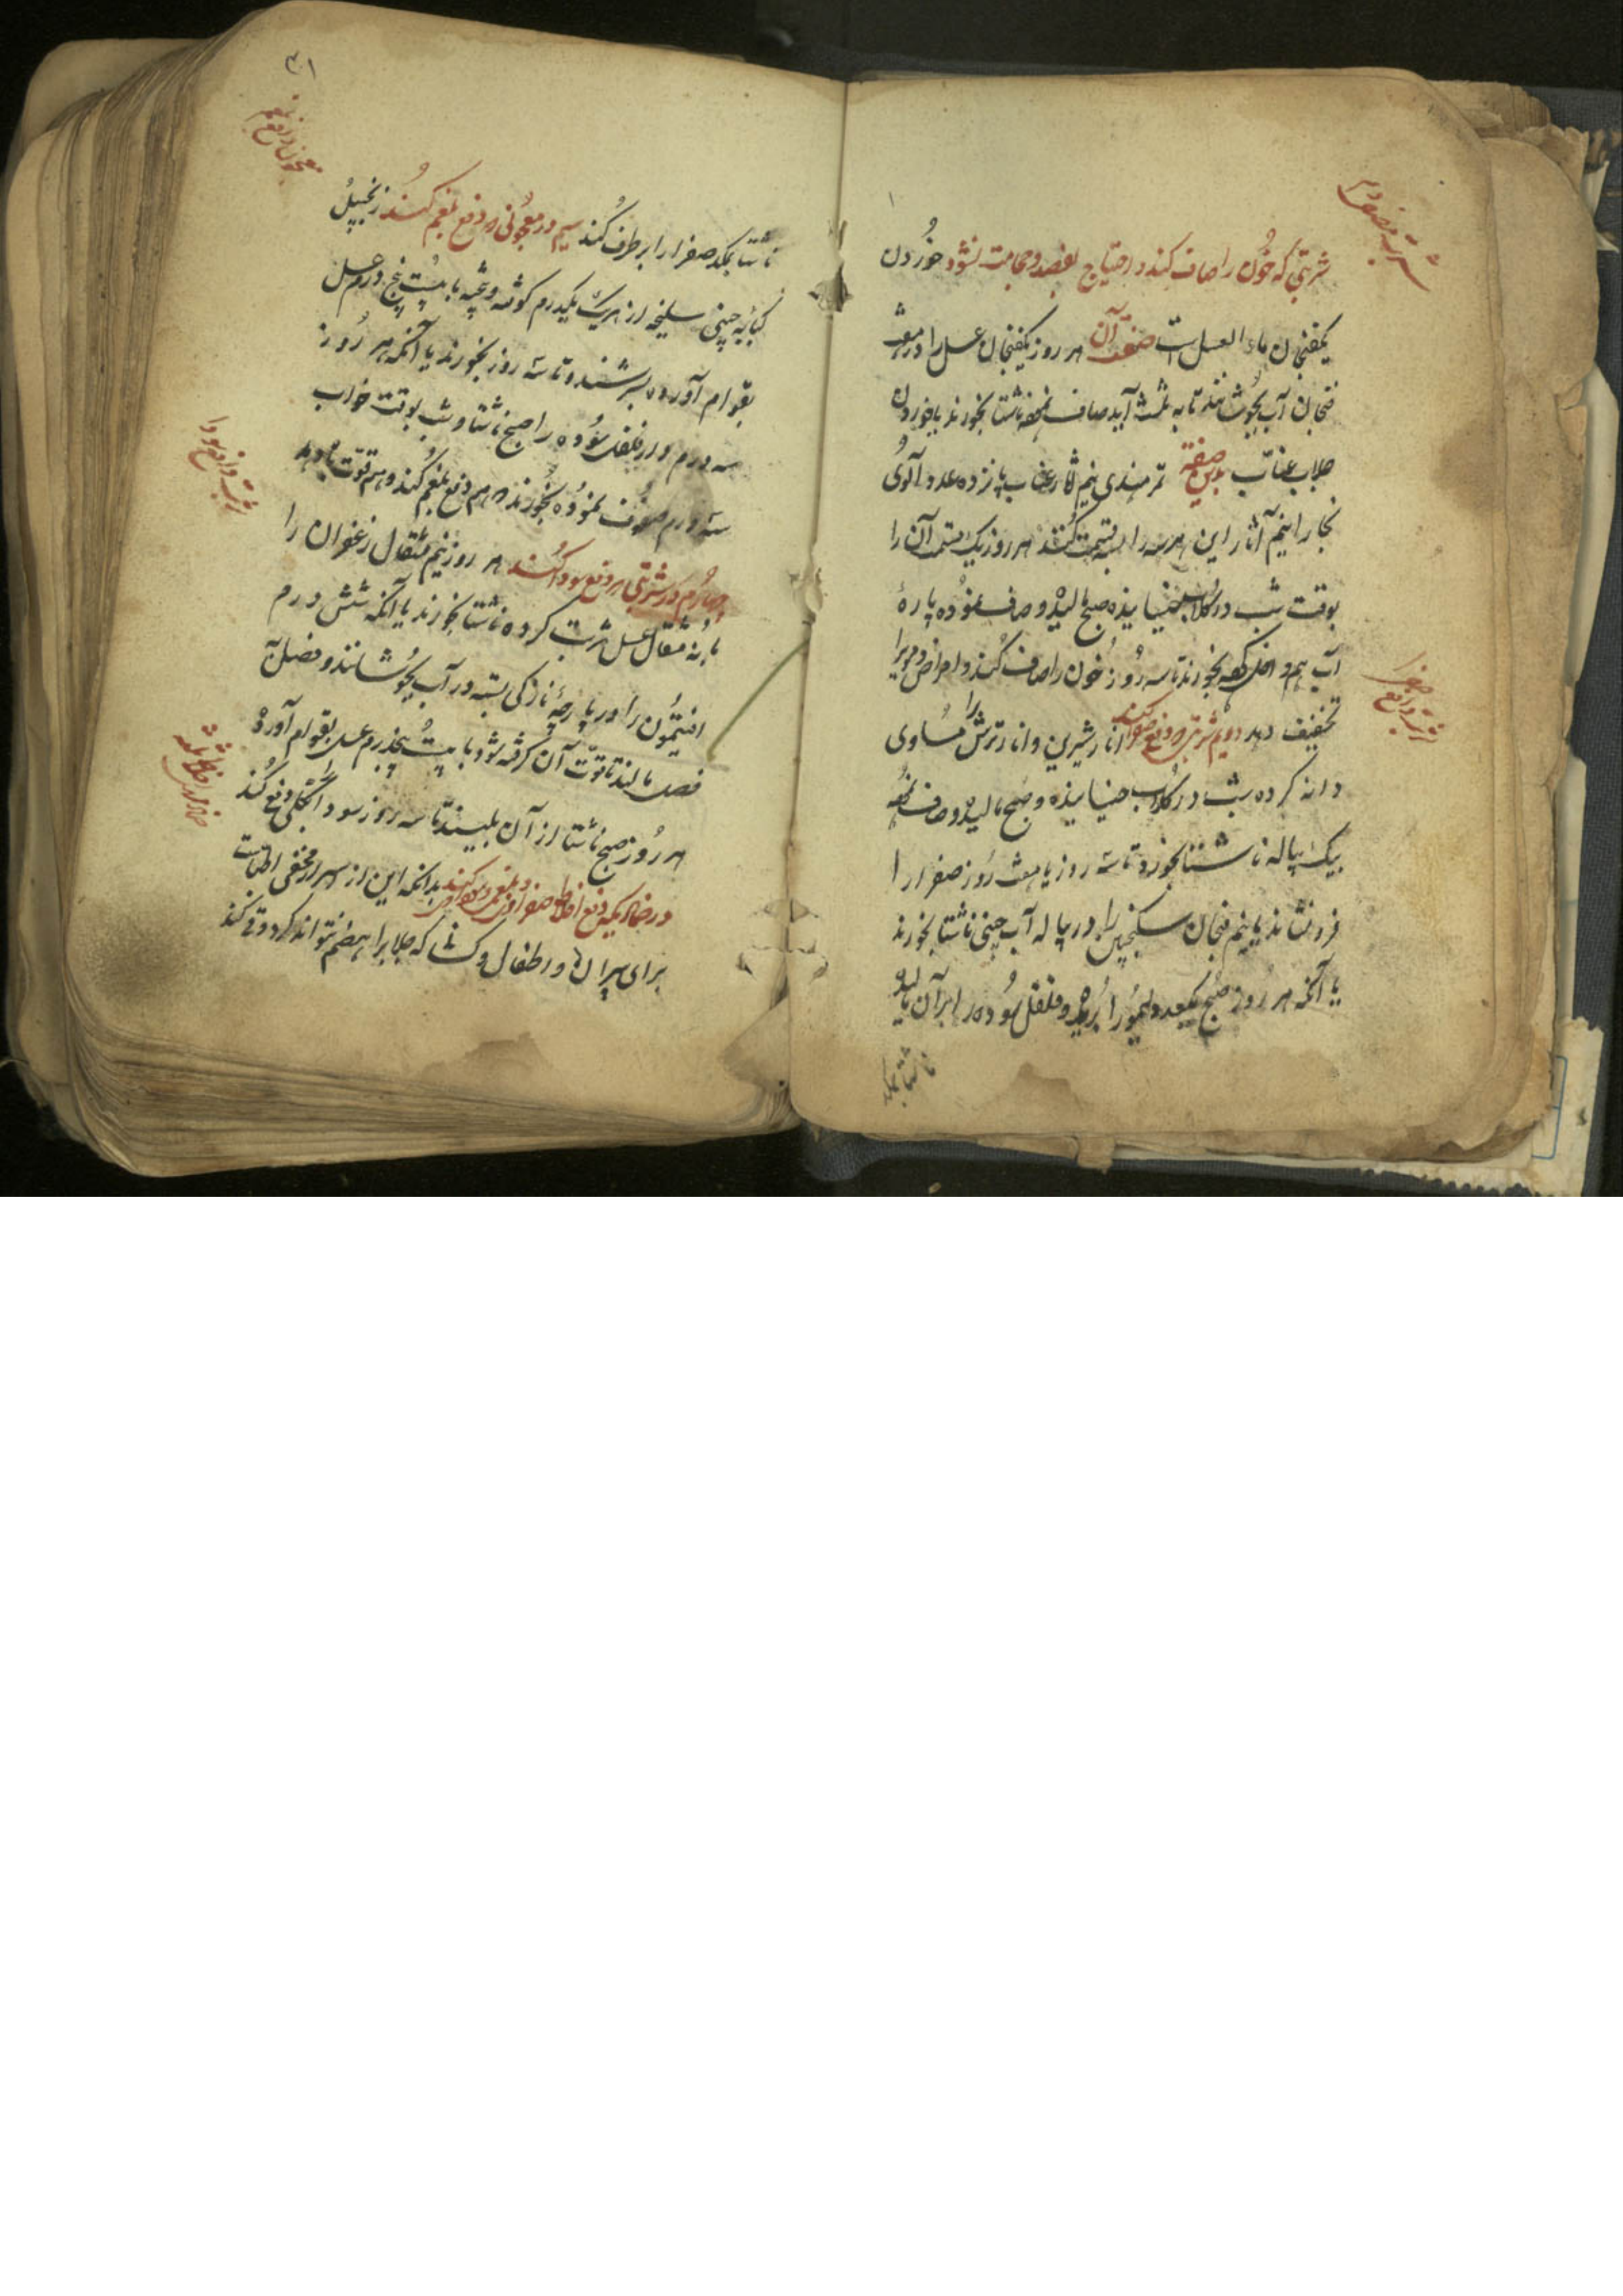 شربتی که خون را صاف کند و احتیاج بفصد و حجامت نشود خوردن
یکفنجان ماء العسل است صفت آن هر روز یکفنجان عسل را در هفت
فنجان آب بجوشانند تا به ثلث آید صاف نموده ناشتا بخورند یا خوردن
جلاب عناب بدین صفة تمر هندی نیم آثار عناب پانزده عدد آلوی
بخارا نیم آثار این هر سه را سه قسمت کنند هر روز یک قسمت آن را
بوقت شب در گلاب خیسانیده صبح مالیده و صاف نموده پارهٔ
آب هم داخل کرده بخورند تا سه روز خون را صاف کند و امراض دمویرا
تخفیف دهد دویم شربتی که دفع صفرا کند انار شیرین و انار ترش را مساوی
دانه کرده شب در گلاب خیسانیده و صبح مالیده و صاف نموده
یک پیاله ناشتا بخورد تا سه روز یا هفت روز صفرا را
فرو نشاند یا نیم فنجان سکنجبین را در پیاله آب چینی ناشتا بخورند
یا آنکه هر روز صبح یکعدد لیمو را بریده و فلفل سوده را بر آن مالیده
ناشتا بمکد
شربت دافع صفرا
۳۰۱
ناشتا بمکد صفرا را برطرف کند سیم در معجونی که دفع بلغم کند زنجبیل
کبابه چینی سلیخه از هر یک یکدرم کوفته و بیخته با بیست پنج درم عسل
بقوام آورده بسرشند و تا سه روز بخورند یا آنکه هر روز
سه درم دار فلفل سوده را صبح ناشتا و شب بوقت خواب
سه درم سفوف نموده بخورند که هم دفع بلغم کند و هم قوت باه دهد
چهارم در شربتی که دفع سودا کند هر روز نیم مثقال زعفران را
با نه مثقال عسل شربت کرده ناشتا بخورند یا آنکه شش درم
افتیمون را در پارچهٔ نازکی بسته در آب بجوشانند و فصل به
فصل مالند تا قوت آن گرفته شود با بیست پنجدرم عسل بقوام آورده
هر روز صبح ناشتا از آن بلیسند تا سه روز سودا بکلی دفع کند
در ضمادیکه دفع اخلاط صفراوی و بلغمی و سوداوی کند بدانکه این از اسرار مخفی اطباست
برای پیران و اطفال و کسانی که جلاب را هضم نتواند کرد و قی کند
معجون دافع بلغم
شربت دافع سودا